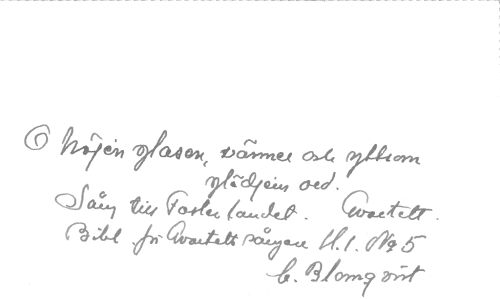 O höjen glasen, värmen och
glädjens ord.
Sång till Fosterlandet. Qvartett.
Bibl. för Qvartettsångare H. 1. No 5
C. Blomqvist